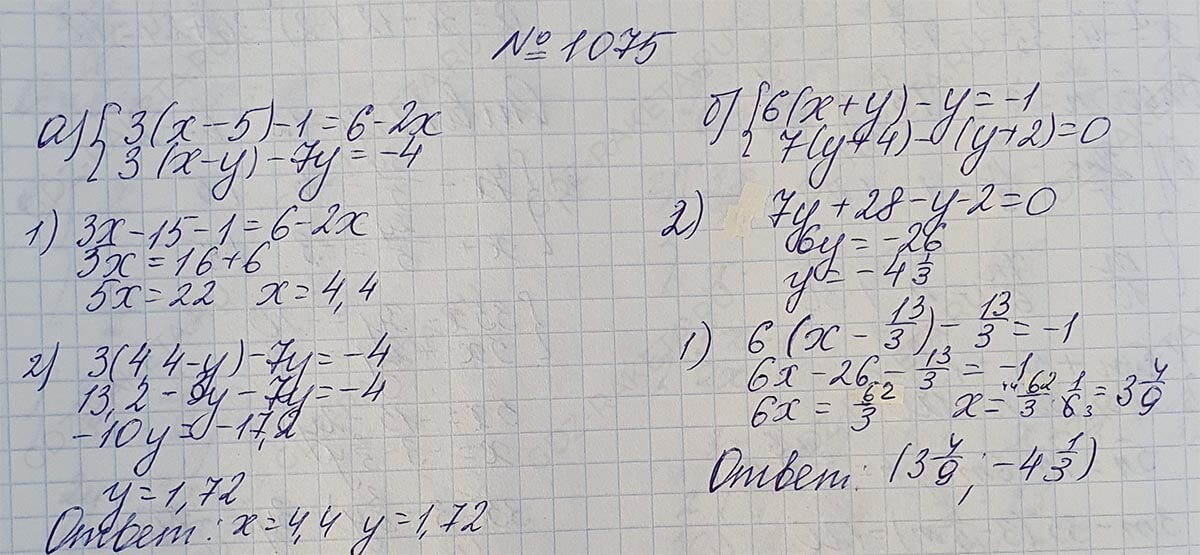 № 1075
а) { 3(x-5)-1=6-2x
3(x-y)-7y=-4
1) 3x-15-1=6-2x
5x=16+6
5x=22 x=4,4
2) 3(4,4-y)-7y=-4
13,2-3y-7y=-4
-10y=-17,2
y=1,72
Ответ: x=4,4 y=1,72
б) { 6(x+y)-y=-1
7(y+4)-(y+2)=0
2) 7y+28-y-2=0
6y=-26
y=-4 1/3
1) 6(x-13/3)-13/3=-1
6x-26-13/3=-1
6x=62/3 x=62/3·1/6=3 4/9
Ответ: (3 4/9; -4 1/3)